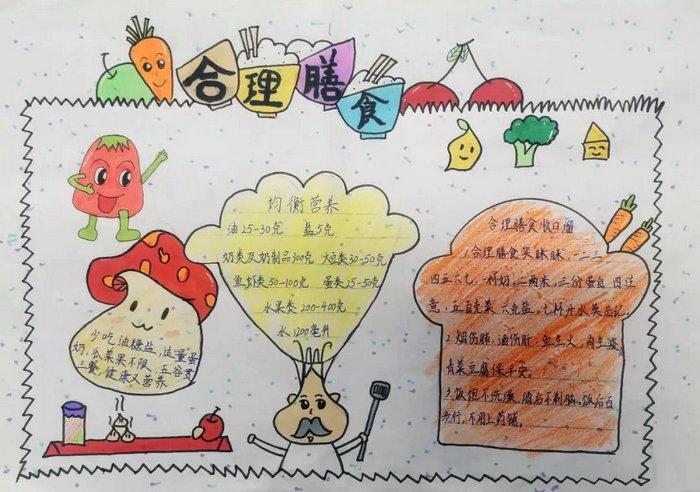 合理膳食
均衡营养
油25-30克 盐5克
奶类及奶制品300克 大豆类30-50克
鱼虾类50-100克 蛋类25-50克
水果类200-400克
水1200毫升
少吃油糖盐,适量蛋
奶,瓜菜果不限,五谷贯
三餐,健康又营养
合理膳食
1合理膳食笑眯眯,一二三
四五六七,一杯奶,二两米,三份蛋白四注
意,五百克菜六克盐,七杯开水莫忘记。
2.烟伤肺,酒伤肝,鱼生火,肉生痰,
青菜豆腐保平安。
3.饭但不洗澡,酒后不剃脑,饭后百
步行,不用上药铺。